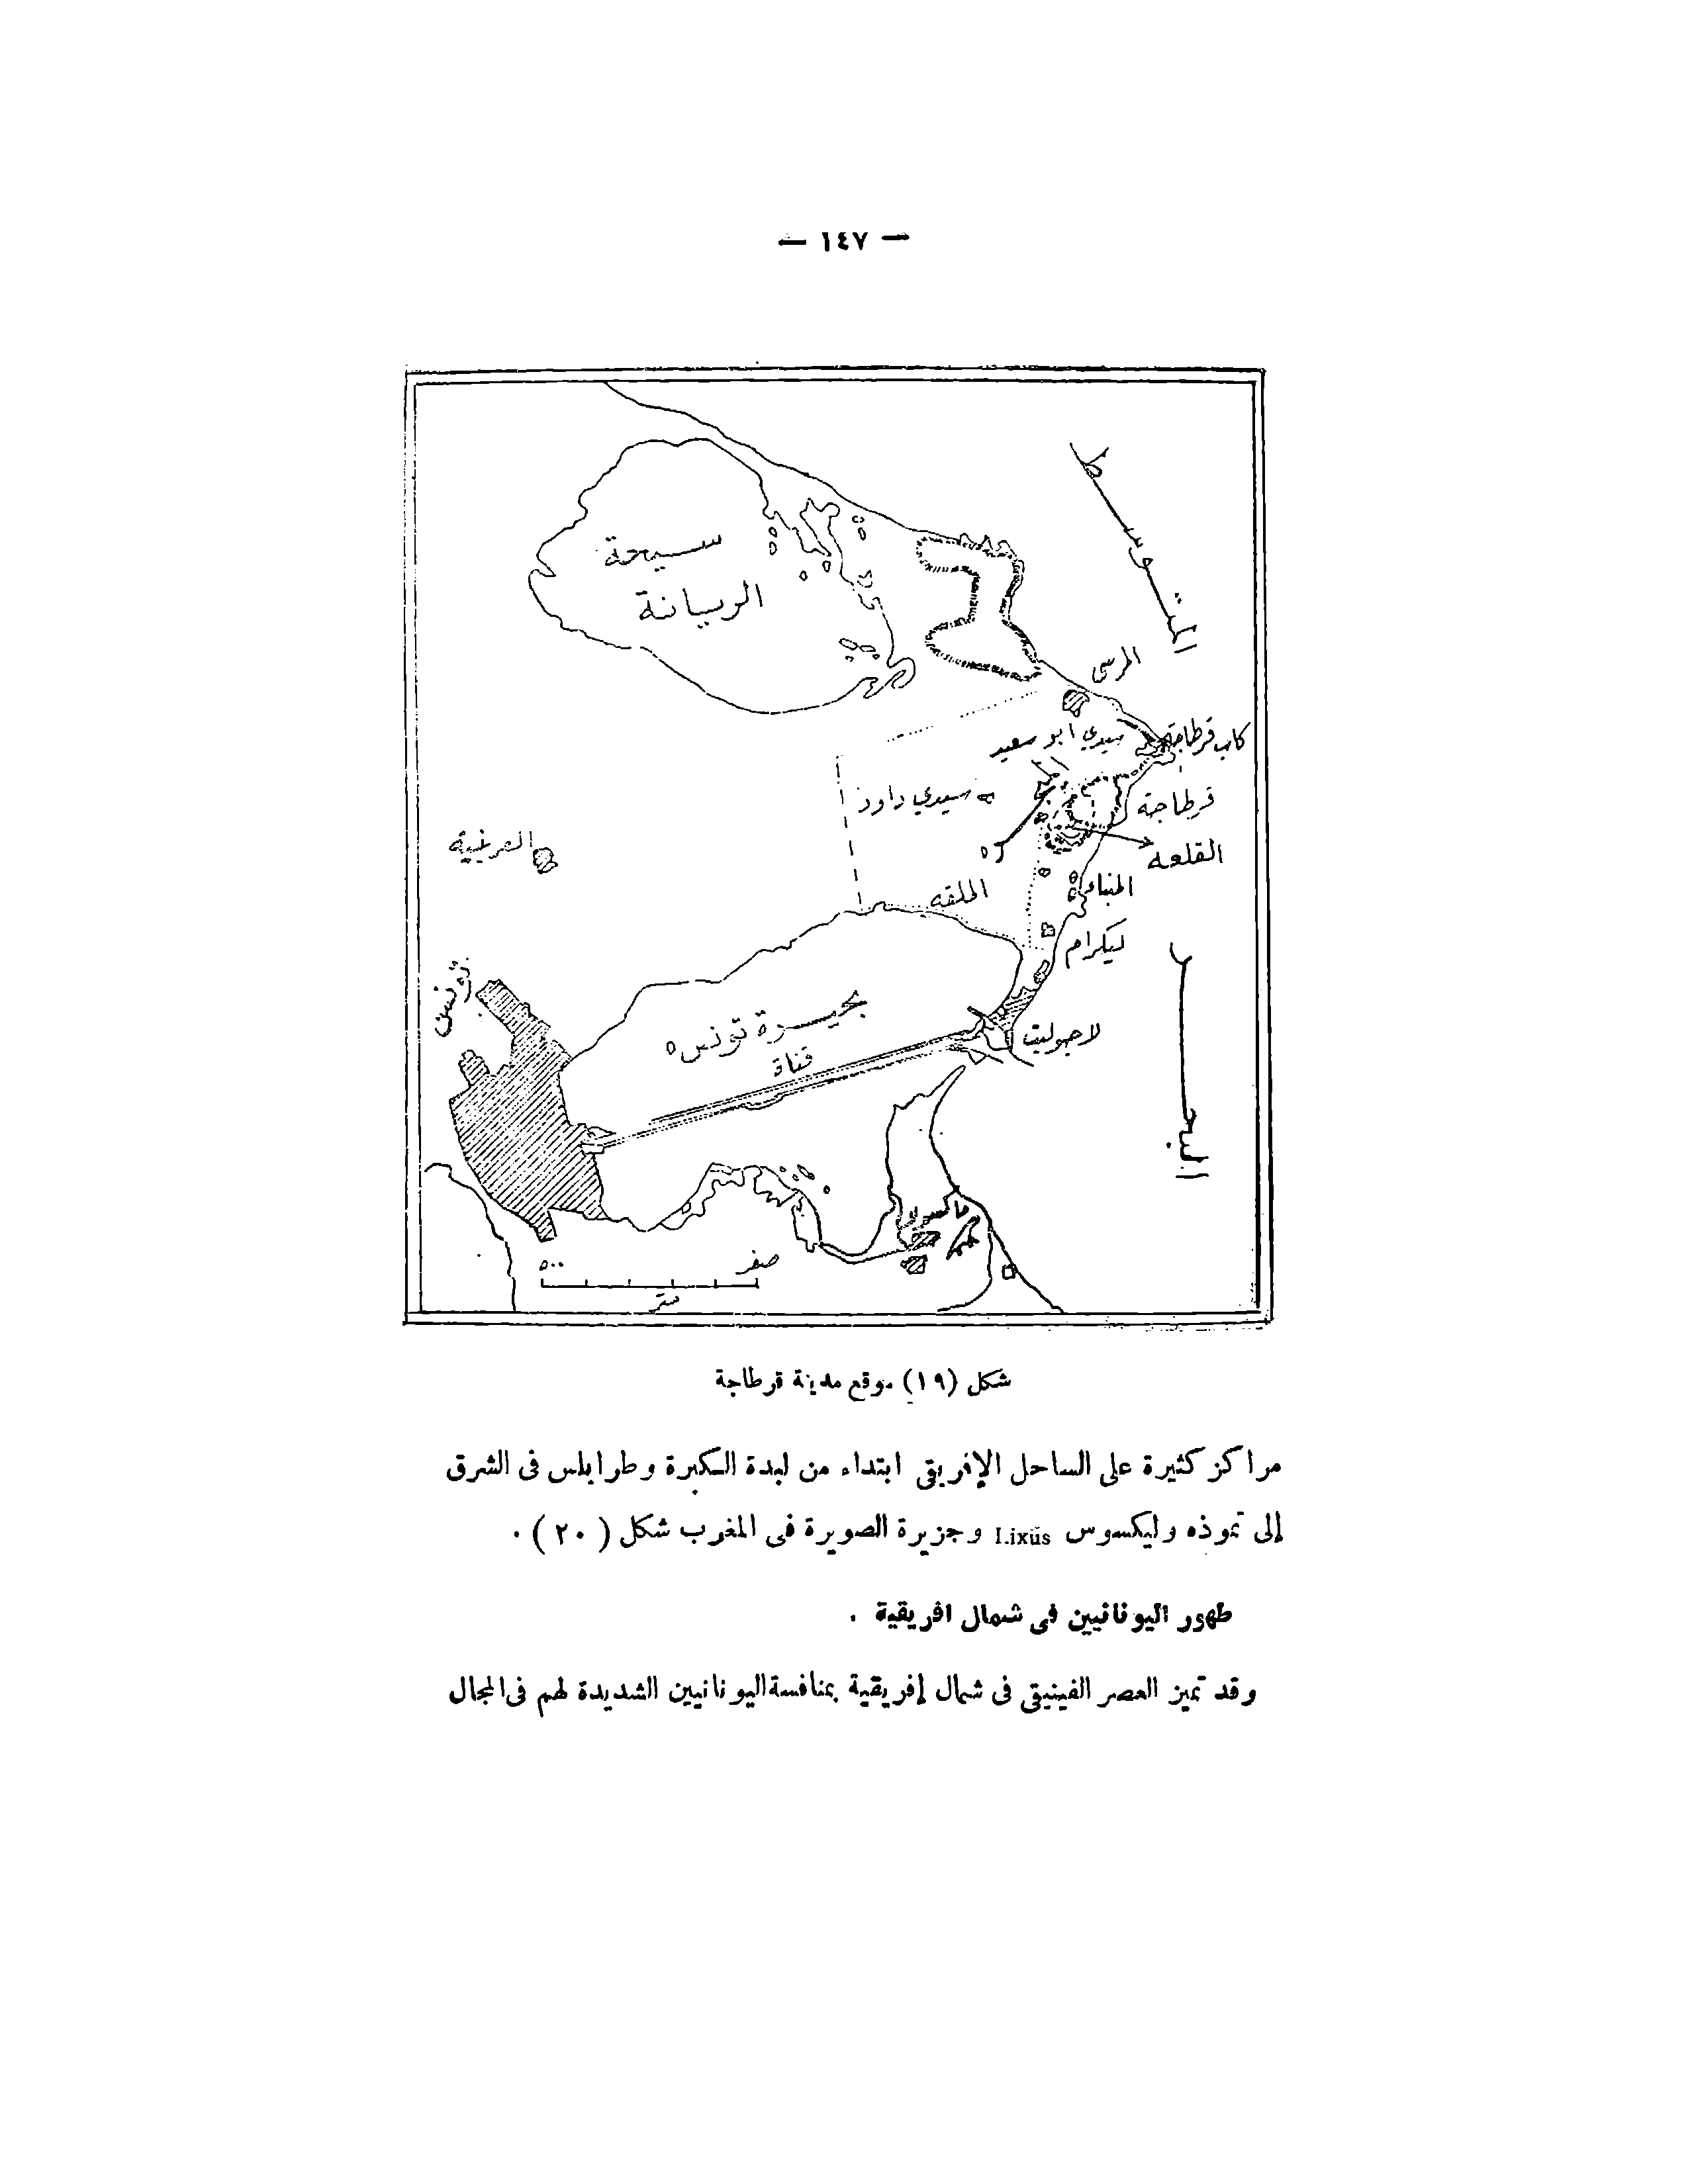 — ١٤٧ —
المتوسط
سبخة
الريانة
المرسى
كاب قرطاجة
سيدي ابو سعيد
سيدي داود
قرطاجة
القلعه
الملقه
الميناء
ليكرام
تونس
بحيرة تونس
قناة
لاجوليت
البحر
صفر
٥٠٠
متر
شكل (١٩) موقع مدينة قرطاجة
مراكز كثيرة على الساحل الإفريقى ابتداء من لبدة الكبرة وطرابلس فى الشرق
إلى تموذه وليكسوس Lixüs وجزيرة الصويرة فى المغرب شكل (٢٠) .
ظهور اليونانيين فى شمال افريقية .
وقد تميز العصر الفينيقى فى شمال إفريقية بمنافسة اليونانيين الشديدة لهم فى المجال